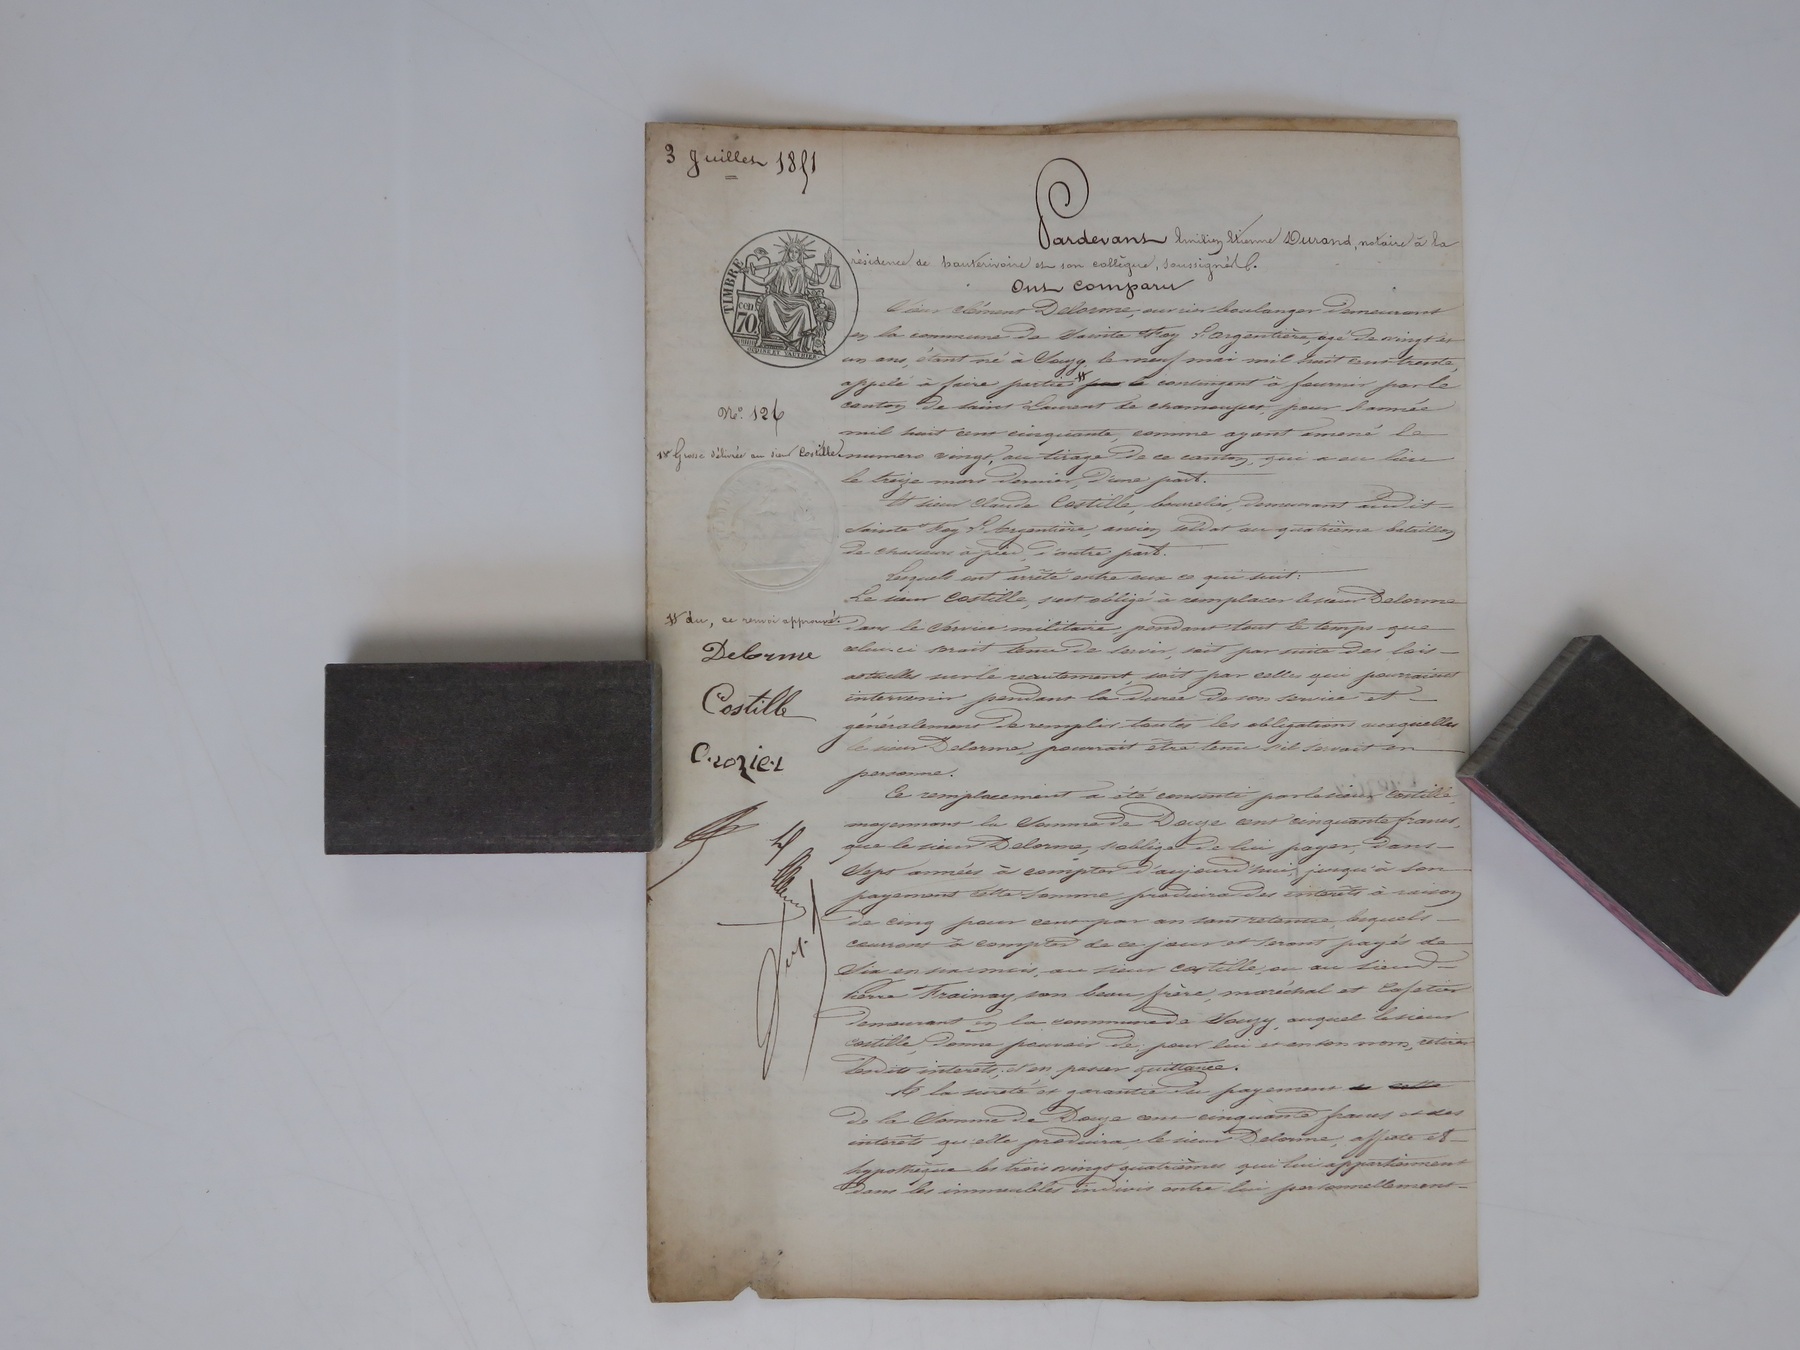 3 Juillet 1851
Pardevant Emilien Etienne Durand, notaire à la
résidence de hauterivoire et son collègue, soussignés.
Ont comparu
TIMBRE
cen
70
N° 126
1re Grosse délivrée au sieur Costille
Sieur Clément Delorme, ouvrier boulanger demeurant
en la commune de Sainte Foy L'argentière, agé de vingt et
un ans, étant né à Souzy le neuf mai mil huit cent trente,
appelé à faire partie # le contingent à fournir par le
canton de saint Laurent de chamousset, pour l'année
mil huit cent cinquante, comme ayant amené le
numero vingt, au tirage de ce canton, qui a eu lieu
le treize mars dernier, d'une part.
Et sieur Claude Costille, bourrelier, demeurant audit
Sainte Foy L'Argentière, ancien soldat au quatrième bataillon
de chasseurs à pied, d'autre part.
Lesquels ont arrêté entre eux ce qui suit:
Le sieur Costille, s'est obligé à remplacer le sieur Delorme
# du, ce renvoi approuvé.
Delorme
Costille
Crozier
dans le Service militaire pendant tout le temps que
celui-ci serait tenu de servir, soit par suite des lois
actuelles sur le recrutement, soit par celles qui pourraient
intervenir pendant la durée de son service et
généralement de remplir toutes les obligations auxquelles
le sieur Delorme, pourrait être tenu s'il servait en
personne.
Ce remplacement a été consenti par le sieur Costille,
moyennant la Somme de Douze cent cinquante francs,
que le sieur Delorme, s'oblige de lui payer, dans
Sept années à compter d'aujourd'hui, jusqu'à son
payement cette somme produira des intérêts à raison
de cinq pour cent par an sans retenue, lesquels
courront à compter de ce jour et seront payés de
Six en six mois, au sieur Costille, ou au sieur
Pierre Frainay, son beau frère, maréchal et Cafetier
demeurant en la commune de Souzy, auquel le sieur
Costille, donne pouvoir de, pour lui et en son nom, retirer
lesdits interêts, et en passer quittance.
A la sureté et garantie du payement de cette
de la Somme de Douze cent cinquante francs et des
interêts qu'elle produira, le sieur Delorme, affecte et
hypothèque les trois vingt quatrièmes qui lui appartiennent
dans les immeubles indivis entre lui personnellement